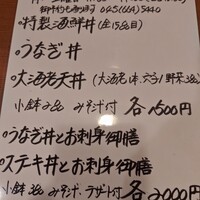 045(664)5440
◦特製海鮮丼(全15品目)
◦うなぎ丼
◦大海老天丼(大海老2本、穴子/野菜3品)
小鉢3品 みそ汁付 各1500円
◦うなぎ丼とお刺身御膳
◦ステキ丼とお刺身御膳
小鉢3品 みそ汁、デザート付 各2000円